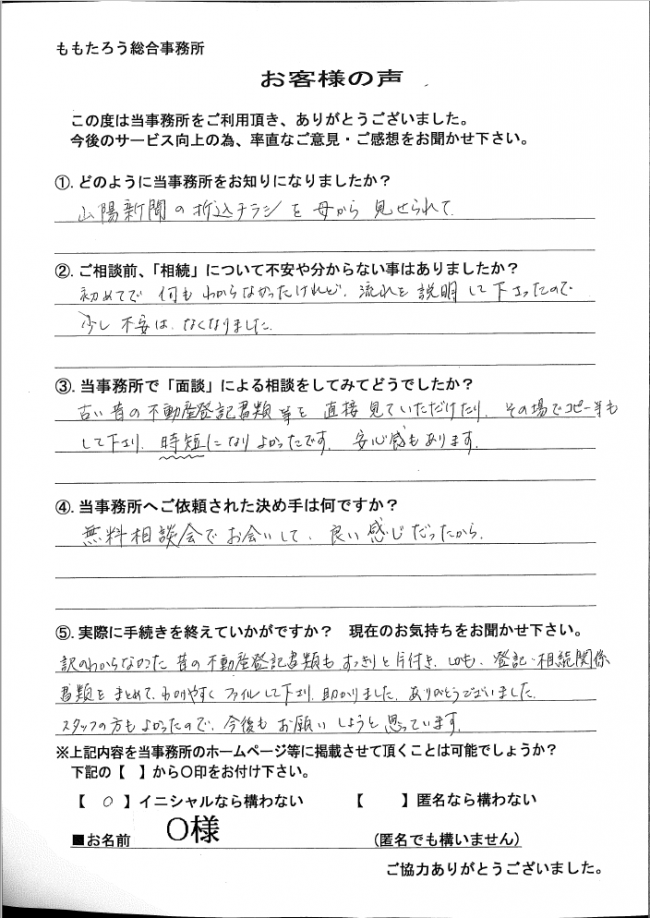 ももたろう総合事務所
お客様の声
この度は当事務所をご利用頂き、ありがとうございました。
今後のサービス向上の為、率直なご意見・ご感想をお聞かせ下さい。
①. どのように当事務所をお知りになりましたか？
山陽新聞の折込チラシを母から見せられて
②. ご相談前、「相続」について不安や分からない事はありましたか？
初めてで何もわからなかったけれど、流れを説明して下さったので
少し不安は、なくなりました。
③. 当事務所で「面談」による相談をしてみてどうでしたか？
古い昔の不動産登記書類等を直接見ていただけたり、その場でコピー等も
して下さり、時短になりよかったです。安心感もあります。
④. 当事務所へご依頼された決め手は何ですか？
無料相談会でお会いして、良い感じだったから。
⑤. 実際に手続きを終えていかがですか？　現在のお気持ちをお聞かせ下さい。
訳のわからなかった昔の不動産登記書類もすっきりと片付き、しかも、登記・相続関係
書類をまとめて、わかりやすくファイルして下さり、助かりました。ありがとうございました。
スタッフの方もよかったので、今後もお願いしようと思っています。
※上記内容を当事務所のホームページ等に掲載させて頂くことは可能でしょうか？
下記の【　】から〇印をお付け下さい。
【　○　】イニシャルなら構わない　　【　　】匿名なら構わない
■お名前　O様　（匿名でも構いません）
ご協力ありがとうございました。